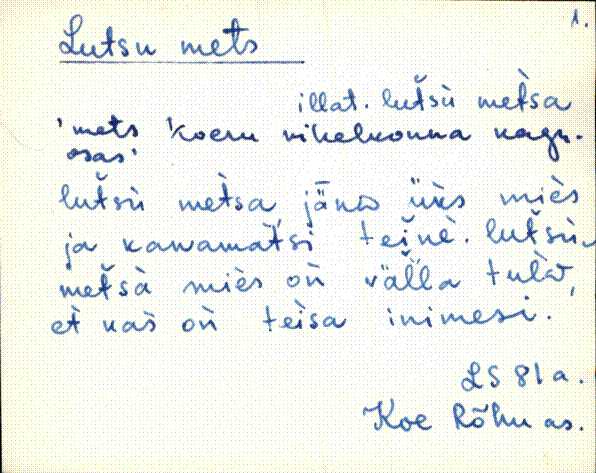 1.
Lutsu mets
illat. lutsù mètsa
'mets Koeru kihelkonna kagu-
osas'
lutsù mètsa jänò üks mìes
ja kawamàtsi teìne. lutsù-
metsà mìes oǹ vàlla tulǹd,
et kas oǹ teìsa inimesi.
LS 81a.
Koe Rõhu as.